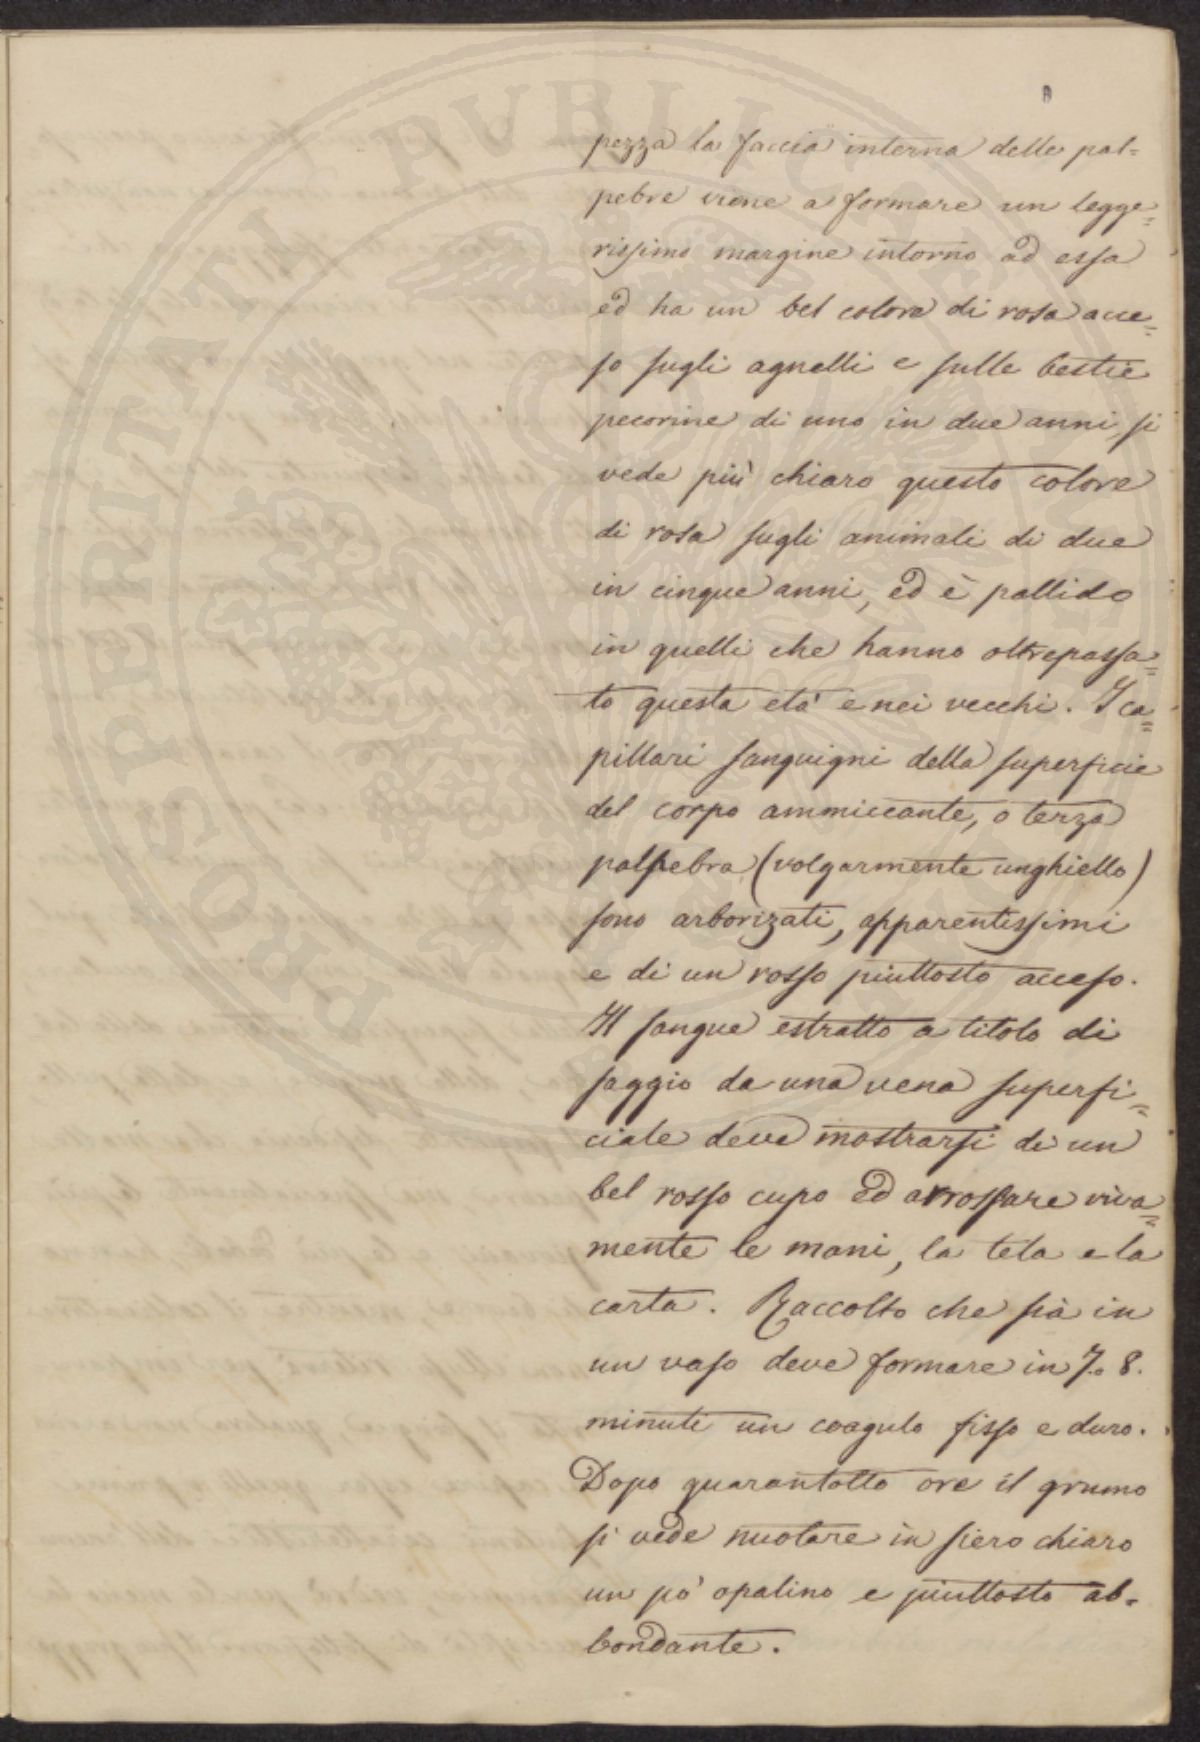 pezza la faccia interna delle pal=
pebre viene a formare un legge=
rissimo margine intorno ad essa
ed ha un bel colore di rosa acce=
so sugli agnelli e sulle bestie
pecorine di uno in due anni, si
vede più chiaro questo colore
di rosa sugli animali di due
in cinque anni, ed è pallido
in quelli che hanno oltrepassa=
to questa età e nei vecchi. I ca=
pillari sanguigni della superficie
del corpo ammiccante, o terza
palpebra (volgarmente unghiello)
sono arborizati, apparentissimi
e di un rosso piuttosto acceso.
Il sangue estratto a titolo di
saggio da una vena superfi=
ciale deve mostrarsi di un
bel rosso cupo ed arrossare viva=
mente le mani, la tela e la
carta. Raccolto che sia in
un vaso deve formare in 7. o 8.
minuti un coagulo fisso e duro.
Dopo quarantotto ore il grumo
si vede nuotare in siero chiaro
un pò opalino e piuttosto ab=
bondante.
PROSPERITATI PUBLICAE